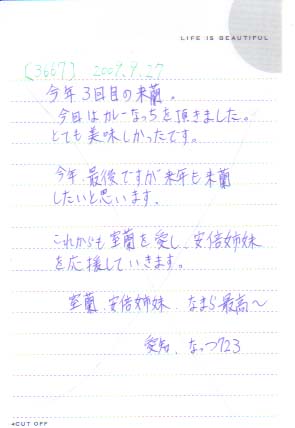 LIFE IS BEAUTIFUL
[3667] 2009.9.27
今年3回目の来蘭。
今日はカレーなっちを頂きました。
とても美味しかったです。
今年、最後ですが来年も来蘭
したいと思います。
これからも室蘭を愛し、安倍姉妹
を応援していきます。
室蘭、安倍姉妹、なまら最高〜
愛知、なっつ723
CUT OFF